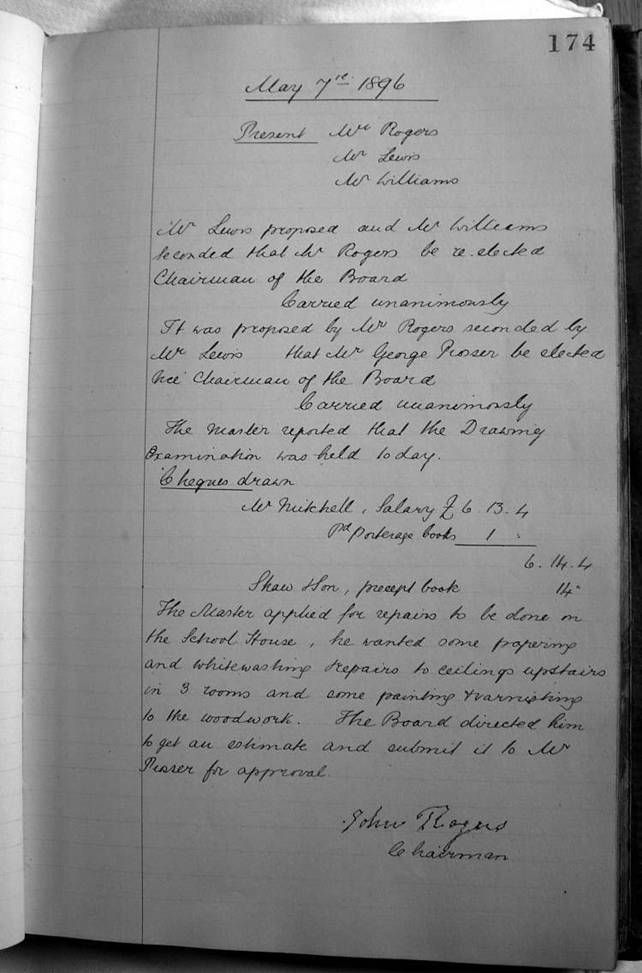 174
May 7th 1896
Present Mr Rogers
Mr Lewis
Mr Williams
Mr Lewis proposed and Mr Williams
seconded that Mr Rogers be re-elected
Chairman of the Board
Carried unanimously
It was proposed by Mr Rogers seconded by
Mr Lewis that Mr George Prosser be elected
Vice Chairman of the Board
Carried unanimously
The Master reported that the Drawing
Examination was held today.
Cheques drawn
Mr Mitchell, Salary £ 6. 13. 4
Pd Porterage books 1 -
6. 14. 4
Shaw & Son, precept book 14 -
The Master applied for repairs to be done on
the School House, he wanted some papering
and whitewashing & repairs to ceilings upstairs
in 3 rooms and some painting & varnishing
to the woodwork. The Board directed him
to get an estimate and submit it to Mr
Prosser for approval.
John Rogers
Chairman